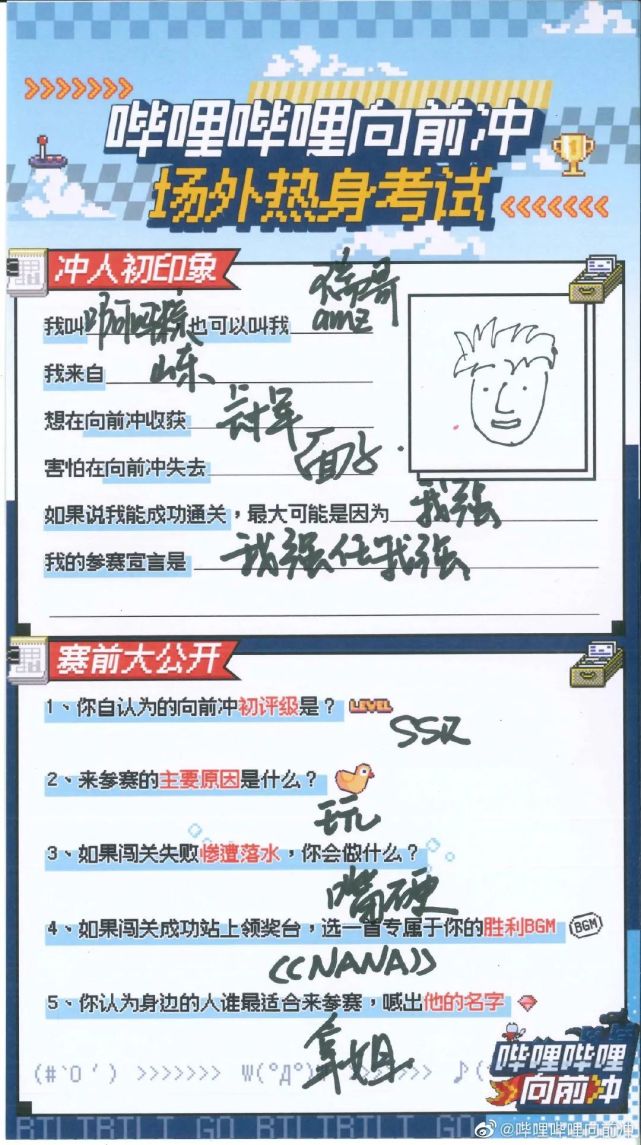 哔哩哔哩向前冲
场外热身考试
冲人初印象
我叫 啊吗粽 也可以叫我 信哥 amz
我来自 山东
想在向前冲收获 冠军
害怕在向前冲失去 面子.
如果说我能成功通关,最大可能是因为 我强
我的参赛宣言是 我强任我强
赛前大公开
1、你自认为的向前冲初评级是? LEVEL
SSR
2、来参赛的主要原因是什么?
玩
3、如果闯关失败惨遭落水,你会做什么?
嘴硬
4、如果闯关成功站上领奖台,选一首专属于你的胜利BGM BGM
《NANA》
5、你认为身边的人谁最适合来参赛,喊出他的名字
拿姐
(#`O′) >>>>>>> W(°Д°) >>>>>> ♪(
哔哩哔哩
向前冲
BILIBILI GO BILIBILI GO
@哔哩哔哩向前冲